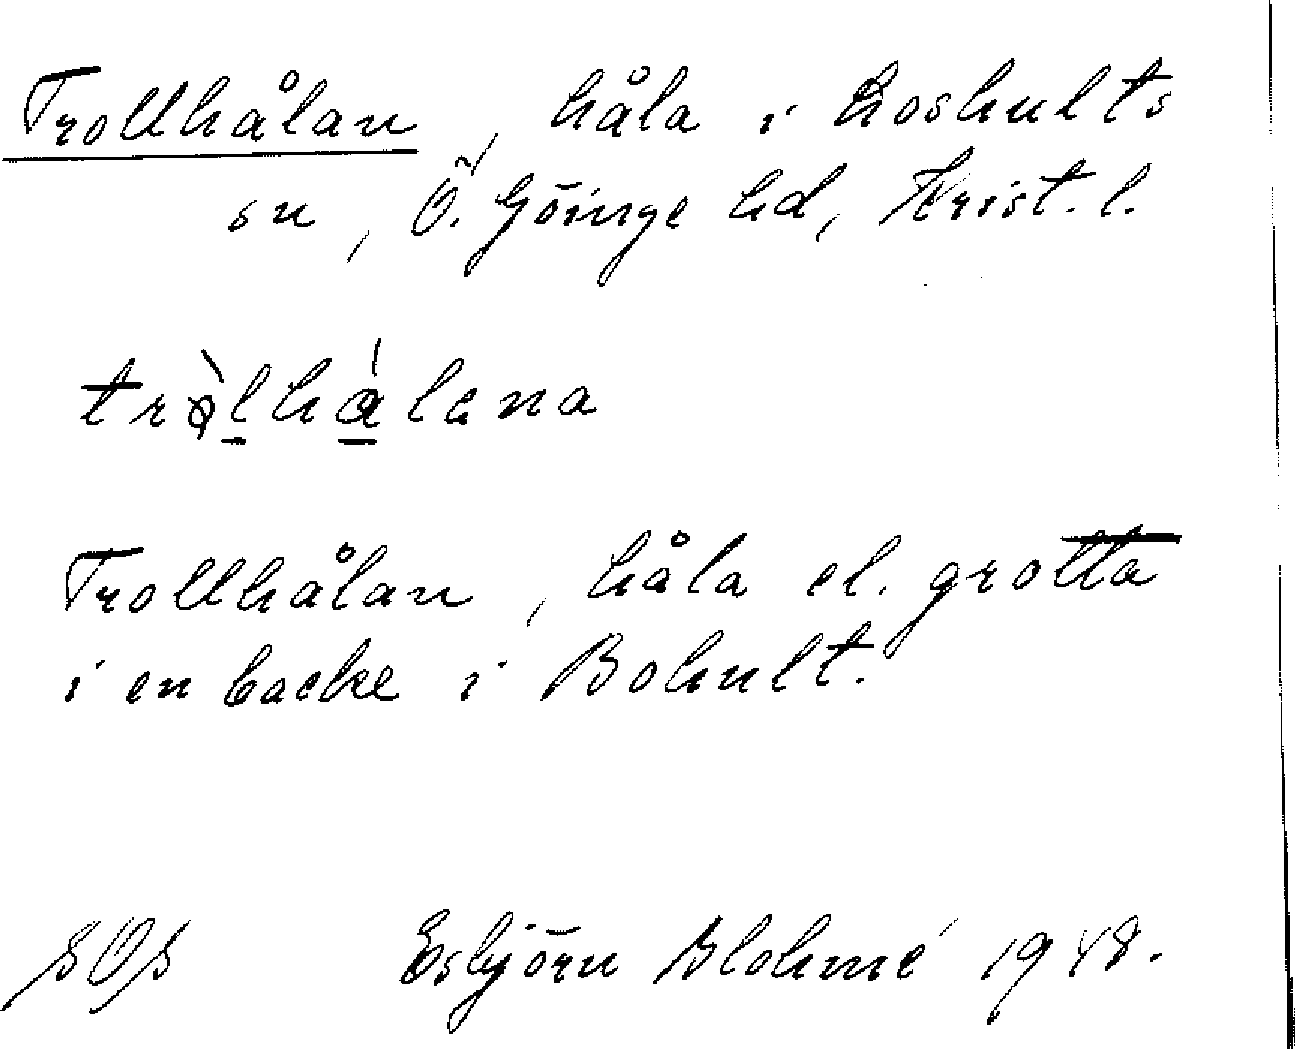 Trollhålan, håla i Loshults
sn, Ö. Göinge hd, Krist. l.
tròlhálena
Trollhålan, håla el. grotta
i en backe i Bohult.
SOS Esbjörn Blohmé 1948.